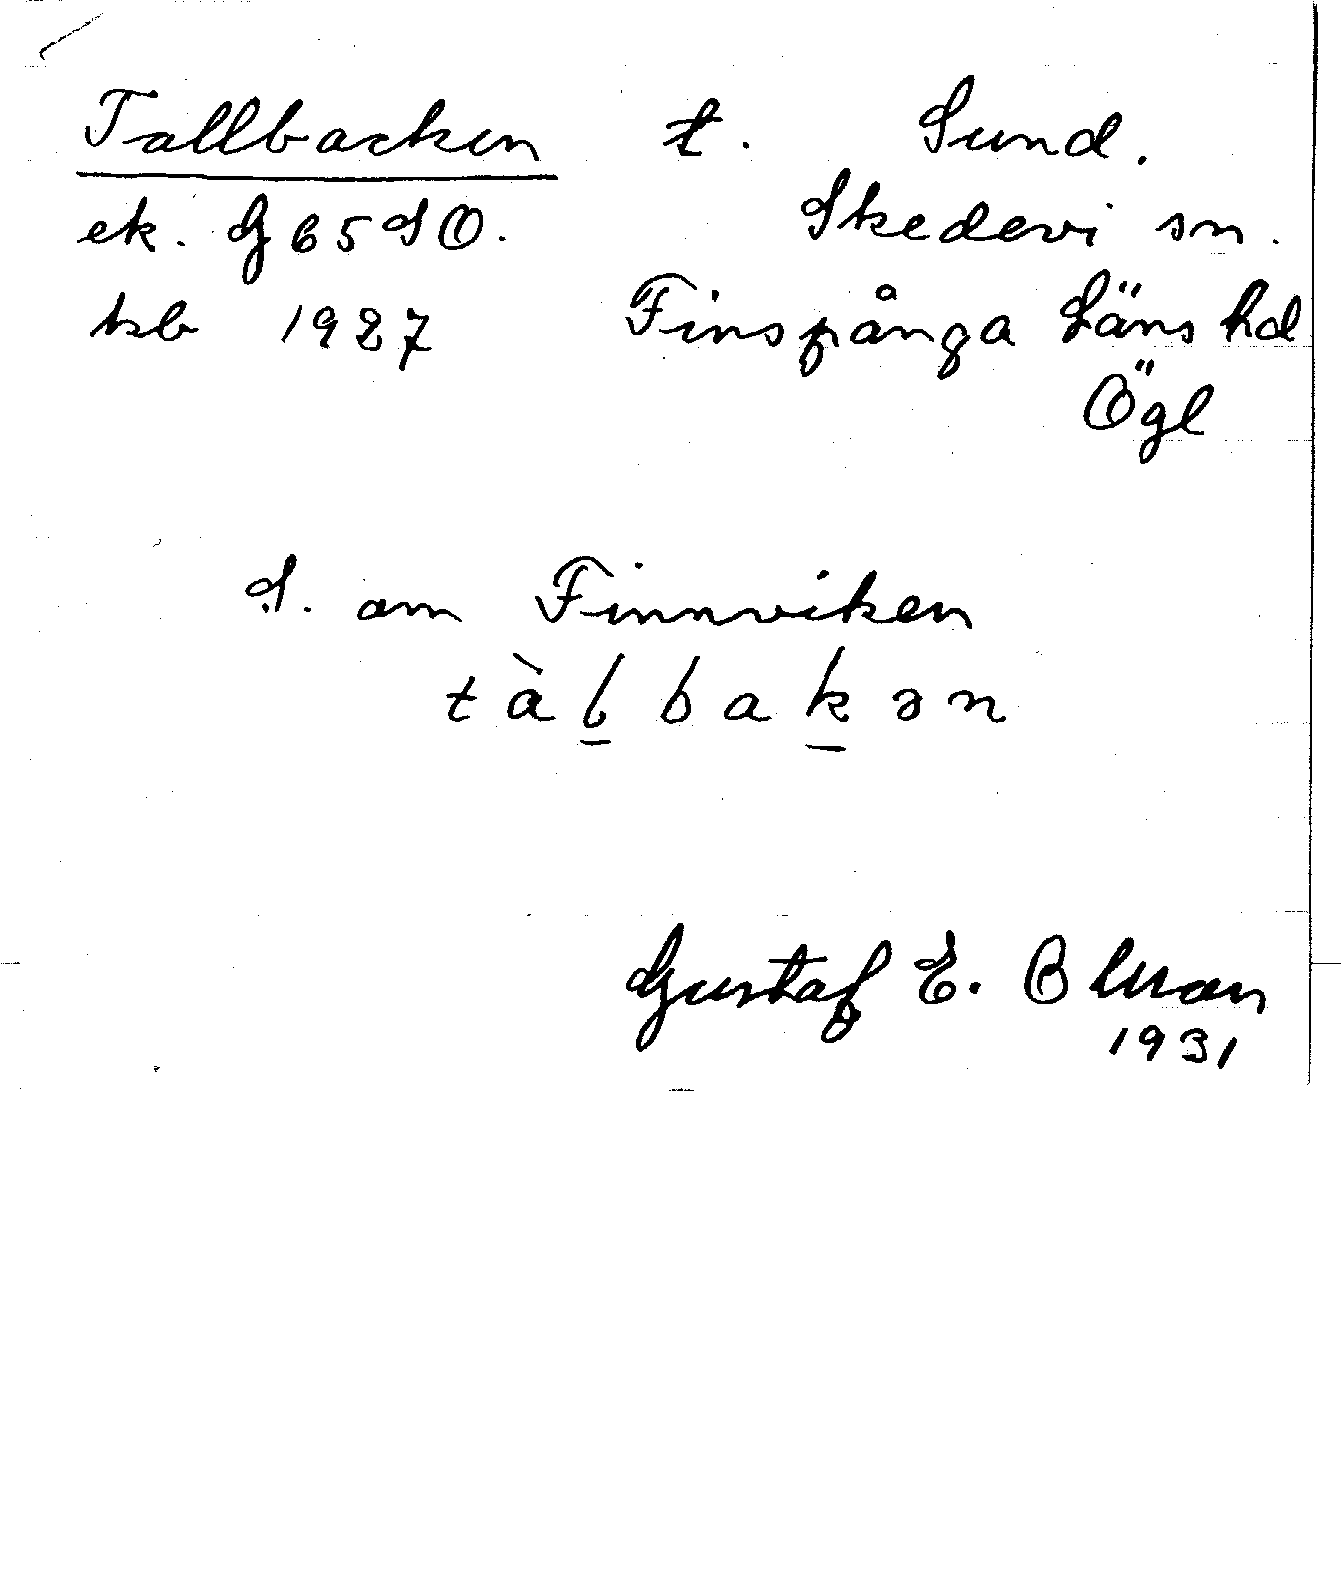 Tallbacken t. Sund.
ek. G 65 SO. Skedevi sn.
kb 1927 Finspånga Läns hd
Ögl
S. om Finnviken
tàlbakən
Gustaf E.
1931